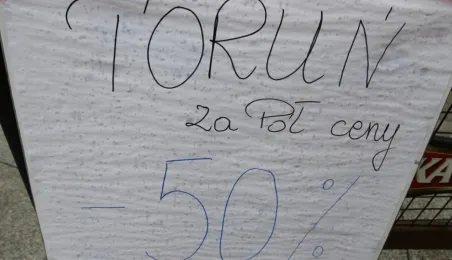 TORUŃ
za Pół ceny
KA
- 50%